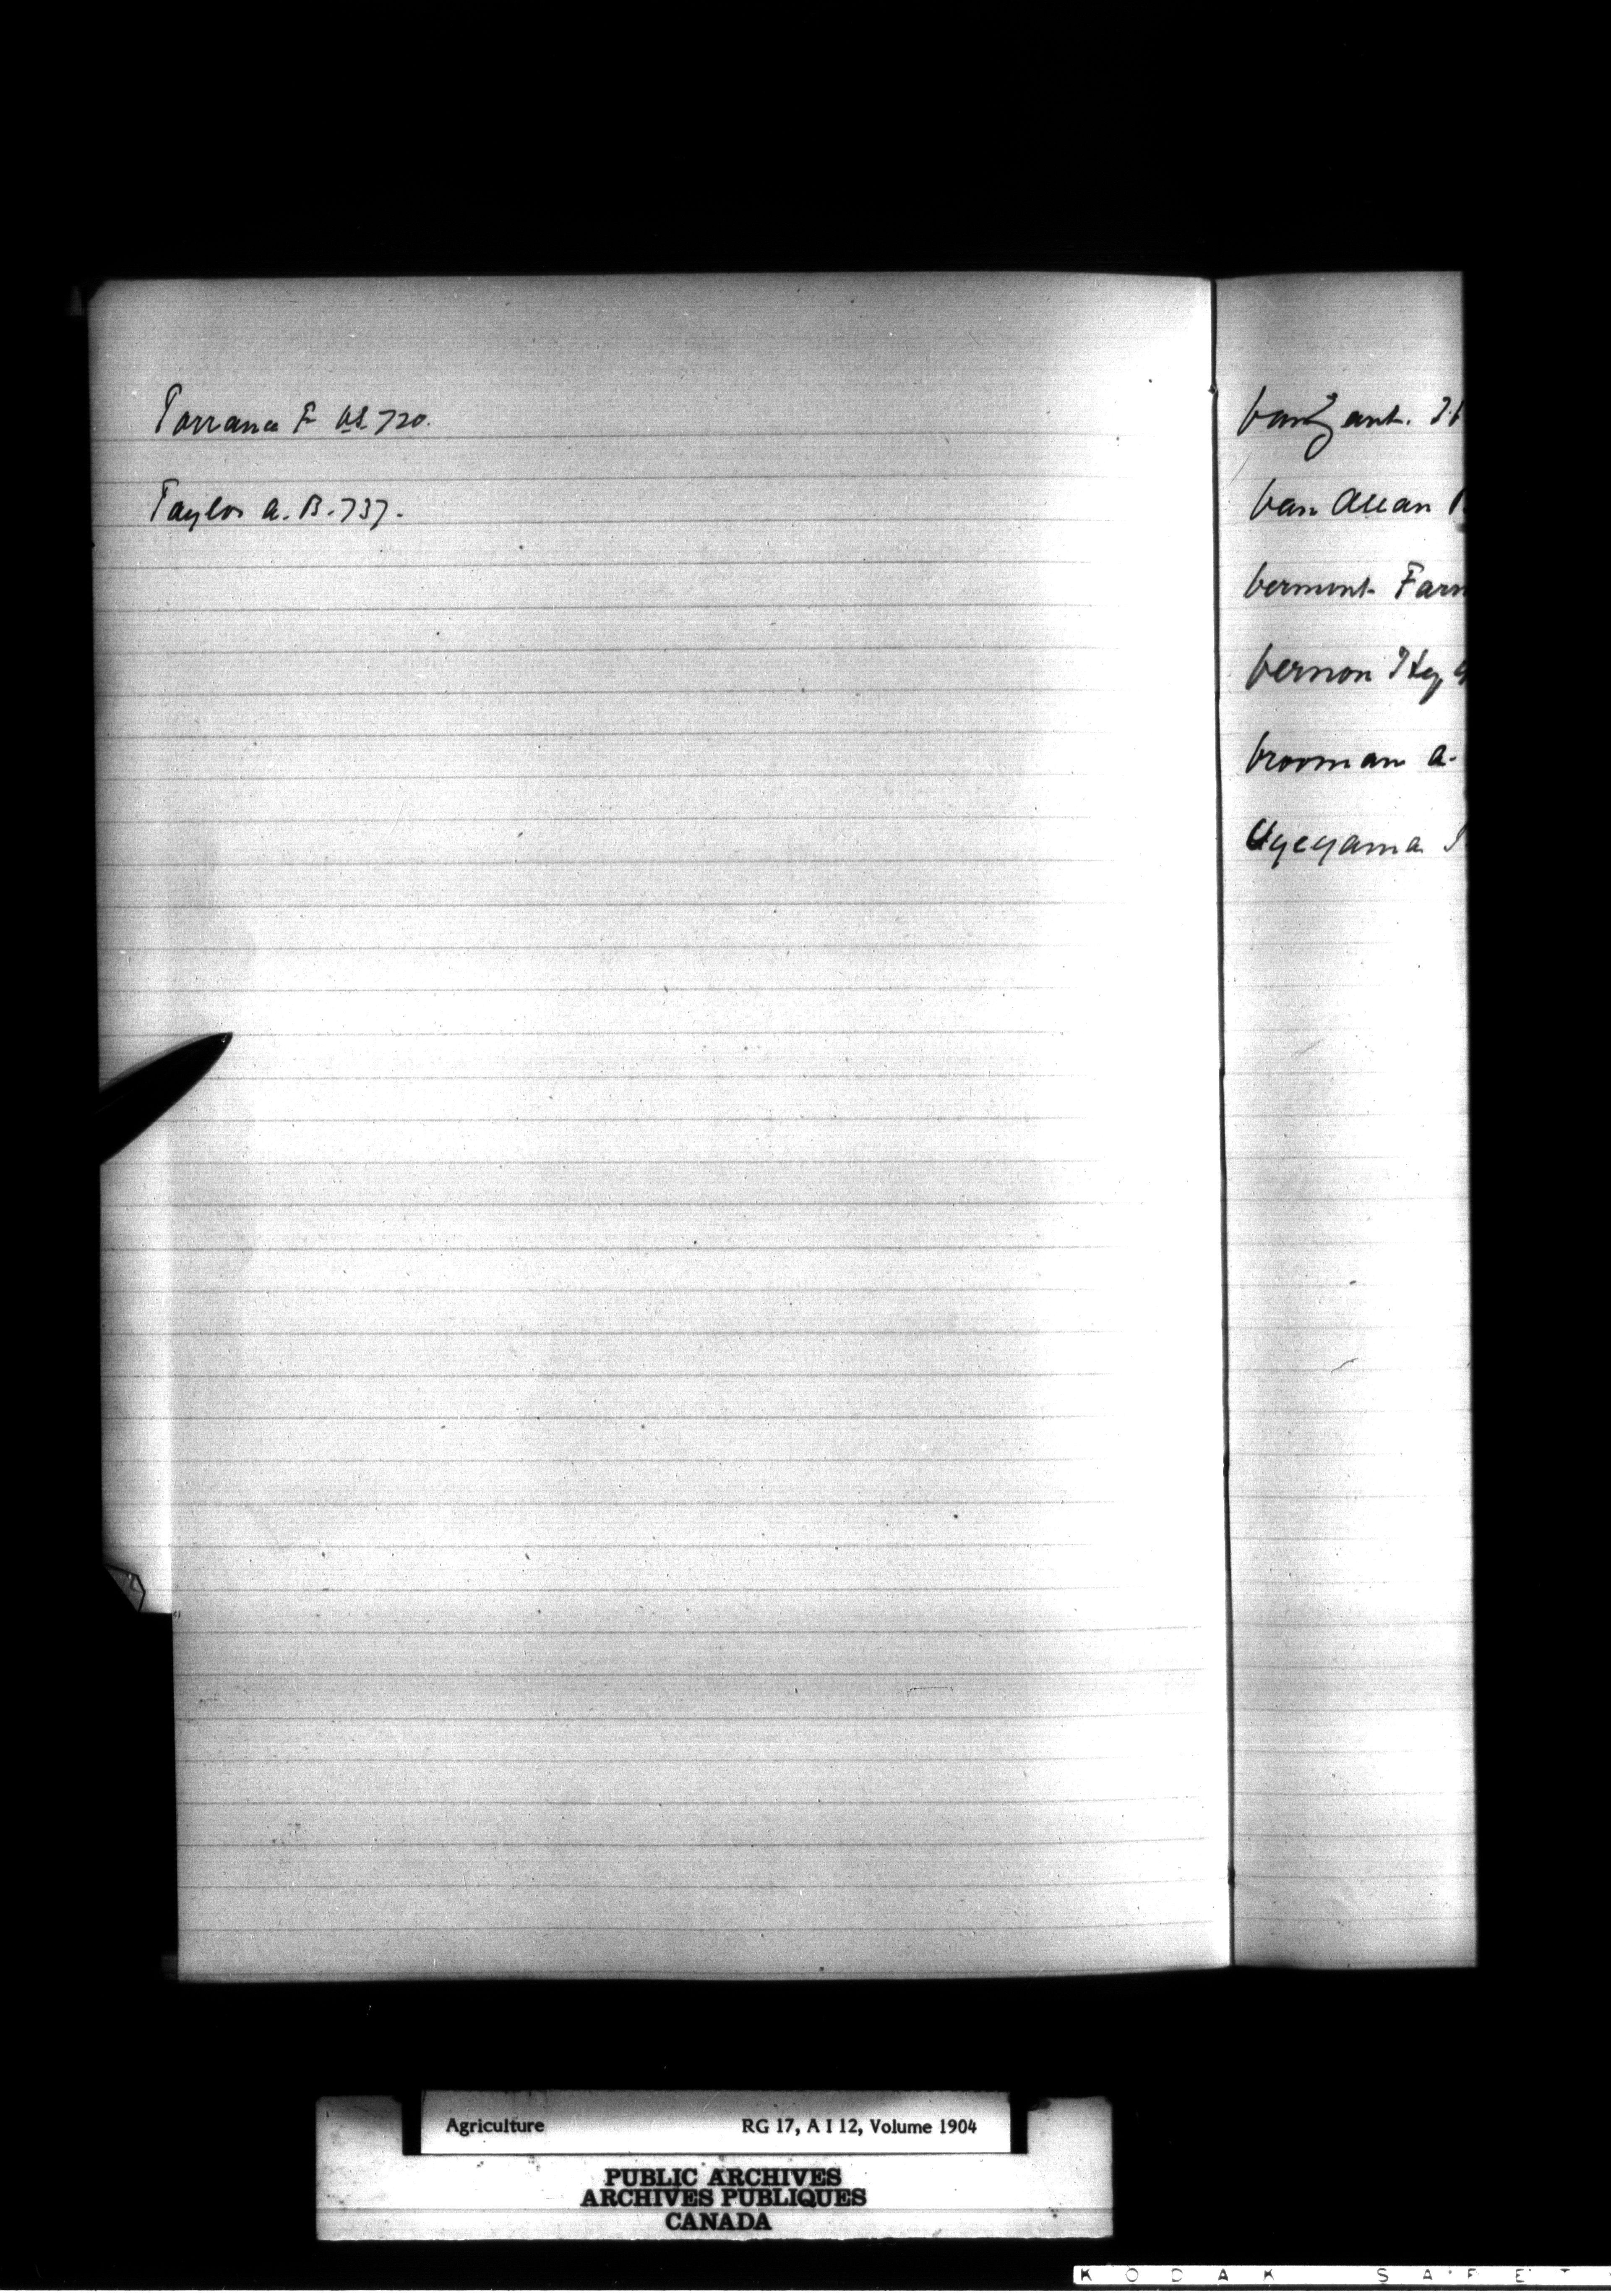 Torrance F. V.S. 720.
Taylor A. B. 737.
VanZant. J.
Van Allan
Vermont Farm
Vernon Hy
Vrooman A.
Uyeyama
Agriculture RG 17, A I 12, Volume 1904
PUBLIC ARCHIVES
ARCHIVES PUBLIQUES
CANADA
KODAK SAFET